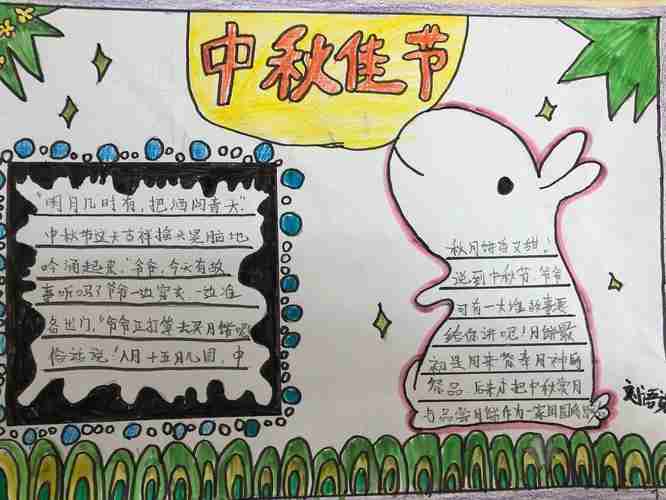 中秋佳节
"明月几时有,把酒问青天"
中秋节这天吉祥摇头晃脑地
吟诵起来,"爷爷,今天有故
事听吗?"爷爷一边穿衣,一边准
备出门,"爷爷正打算去买月饼呢
俗话说:'八月十五月儿圆,中
秋月饼香又甜'!
说到中秋节,爷爷
可有一大堆的事要
给你讲呢!月饼最
初是用来祭奉月神的
祭品,后来才把中秋赏月
与品尝月饼作为一家团圆
刘语